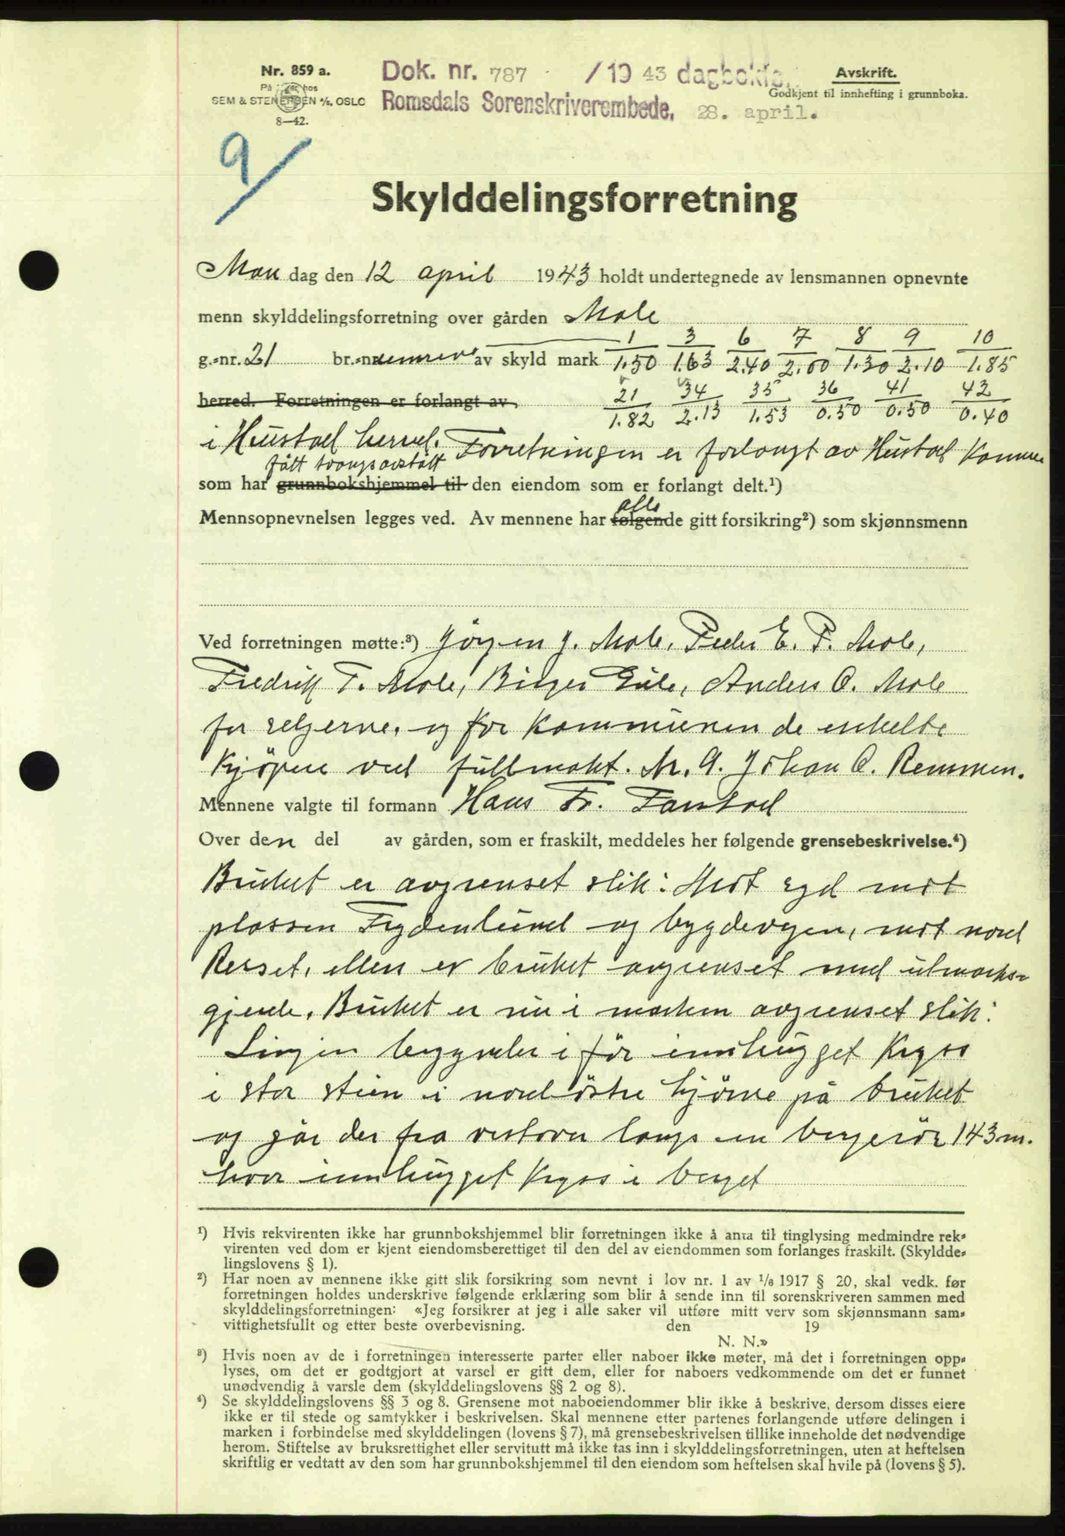 Nr. 859 a.
På lager hos
SEM & STENERSEN A/s, OSLO
8—42.
Dok. nr. 787 /1943 dagbokfø.
Romsdals Sorenskriverembede, 28. april.
Avskrift.
Godkjent til innhefting i grunnboka.
9/
Skylddelingsforretning
Man dag den 12 april 1943 holdt undertegnede av lensmannen opnevnte
menn skylddelingsforretning over gården Male
1 3 6 7 8 9 10
g.-nr. 21 br.-nr. av skyld mark 1.50 1.63 2.40 2.00 1.30 2.10 1.85
21 34 35 36 41 42
herred. Forretningen er forlangt av 1.82 2.13 1.53 0.50 0.50 0.40
i Hustad herred. Forretningen er forlangt av Hustad Komm
fått tvangsavstått
som har grunnbokshjemmel til den eiendom som er forlangt delt.¹)
alle
Mennsopnevnelsen legges ved. Av mennene har følgende gitt forsikring²) som skjønnsmenn
Ved forretningen møtte:³) Jørgen J. Male, Peder E. P. Male,
Fredrik T. Male, Birger Eide, Anders O. Male
for selgerne, og for kommunen de enkelte
kjøpere ved fullmakt. M. A. Johan O. Remmen.
Mennene valgte til formann Hans Fr. Tanstad
Over den del av gården, som er fraskilt, meddeles her følgende grensebeskrivelse.⁴)
Bruket er avgrenset slik: Mot syd mot
plassen Frydenlund og bygdevegen, mot nord
Resset, ellers er bruket avgrenset med utmarks-
gjerde. Bruket er nu i marken avgrenset slik:
Linjen begynder i før innhugget Kryss
i stor stein i nordøstre hjørne på bruket
og går der fra vestover langs en bergerør 143 m.
hvor innhugget Kryss i berget
¹) Hvis rekvirenten ikke har grunnbokshjemmel blir forretningen ikke å anta til tinglysing medmindre rek-
virenten ved dom er kjent eiendomsberettiget til den del av eiendommen som forlanges fraskilt. (Skyldde-
lingslovens § 1).
²) Har noen av mennene ikke gitt slik forsikring som nevnt i lov nr. 1 av ¹/₈ 1917 § 20, skal vedk. før
forretningen holdes underskrive følgende erklæring som blir å sende inn til sorenskriveren sammen med
skylddelingsforretningen: «Jeg forsikrer at jeg i alle saker vil utføre mitt verv som skjønnsmann sam-
vittighetsfullt og etter beste overbevisning. den 19
N. N.»
³) Hvis noen av de i forretningen interesserte parter eller naboer ikke møter, må det i forretningen opp-
lyses, om det er godtgjort at varsel er gitt dem, eller for naboers vedkommende om det er funnet
unødvendig å varsle dem (skylddelingslovens §§ 2 og 8).
⁴) Se skylddelingslovens §§ 3 og 8. Grensene mot naboeiendommer blir ikke å beskrive, dersom disses eiere
ikke er til stede og samtykker i beskrivelsen. Skal mennene etter partenes forlangende utføre delingen i
marken i forbindelse med skylddelingen (lovens § 7), må grensebeskrivelsen tillike inneholde det nødvendige
herom. Stiftelse av bruksrettighet eller servitutt må ikke tas inn i skylddelingsforretningen, uten at heftelsen
skriftlig er vedtatt av den som har grunnbokshjemmel til den eiendom som heftelsen skal hvile på (lovens § 5).